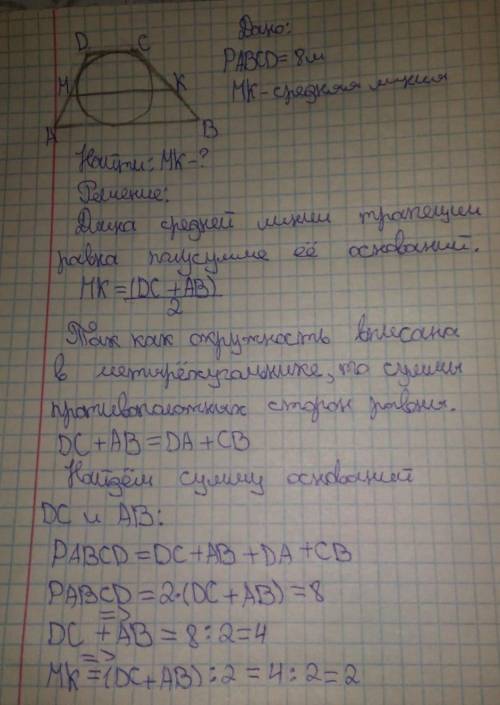 D C
M K
A B
Дано:
PABCD = 8м
MK - средняя линия
Найти: MK - ?
Решение:
Длина средней линии трапеции
равна полусумме её оснований.
MK = (DC + AB)
2
Так как окружность вписана
в четырёхугольнике, то суммы
противоположных сторон равны.
DC + AB = DA + CB
Найдём сумму оснований
DC и AB:
PABCD = DC + AB + DA + CB
PABCD = 2·(DC + AB) = 8
=>
DC + AB = 8 : 2 = 4
=>
MK = (DC + AB) : 2 = 4 : 2 = 2